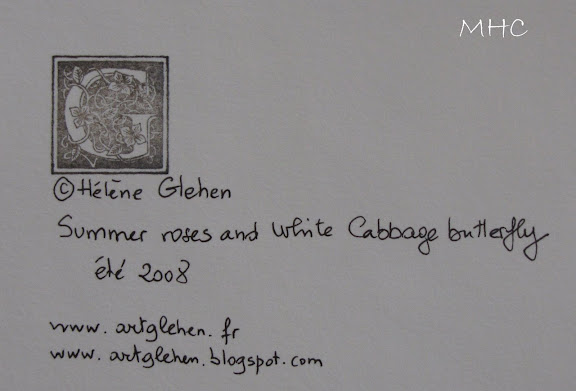 MHC
G
© Hélène Glehen
Summer roses and White Cabbage butterfly
été 2008
www.artglehen.fr
www.artglehen.blogspot.com